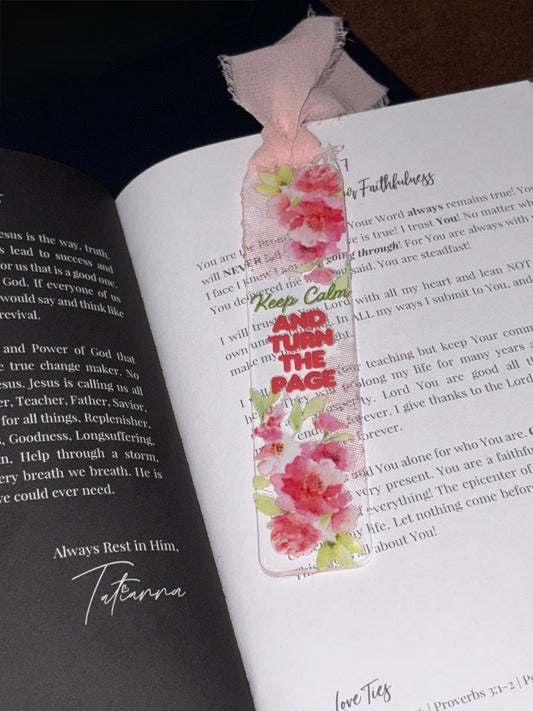 Jesus is the way, truth,
s lead to success and
or us that is a good one.
God. If everyone of us
would say and think like
revival.
and Power of God that
e true change maker. No
esus. Jesus is calling us all
er, Teacher, Father, Savior,
for all things, Replenisher,
s, Goodness, Longsuffering,
n. Help through a storm,
ery breath we breath. He is
we could ever need.
Always Rest in Him,
Tatianna
7
for Faithfulness
You are the Your Word always remains true! You
will NEVER is true! I trust You! No matter wh
I face I know I going through! For You are always with
You delivered me said. You are steadfast!
I will trust Lord with all my heart and lean NOT
own In ALL my ways I submit to You, and
make my
I your teaching but keep Your comm
along my life for many years a
Lord You are good all th
forever. I give thanks to the Lord
forever.
and You alone for who You are.
very present. You are a faithfu
of everything! The epicenter of
my life. Let nothing come before
all about You!
Love Ties
6 | Proverbs 3:1-2 | Ps
Keep Calm
AND
TURN
THE
PAGE